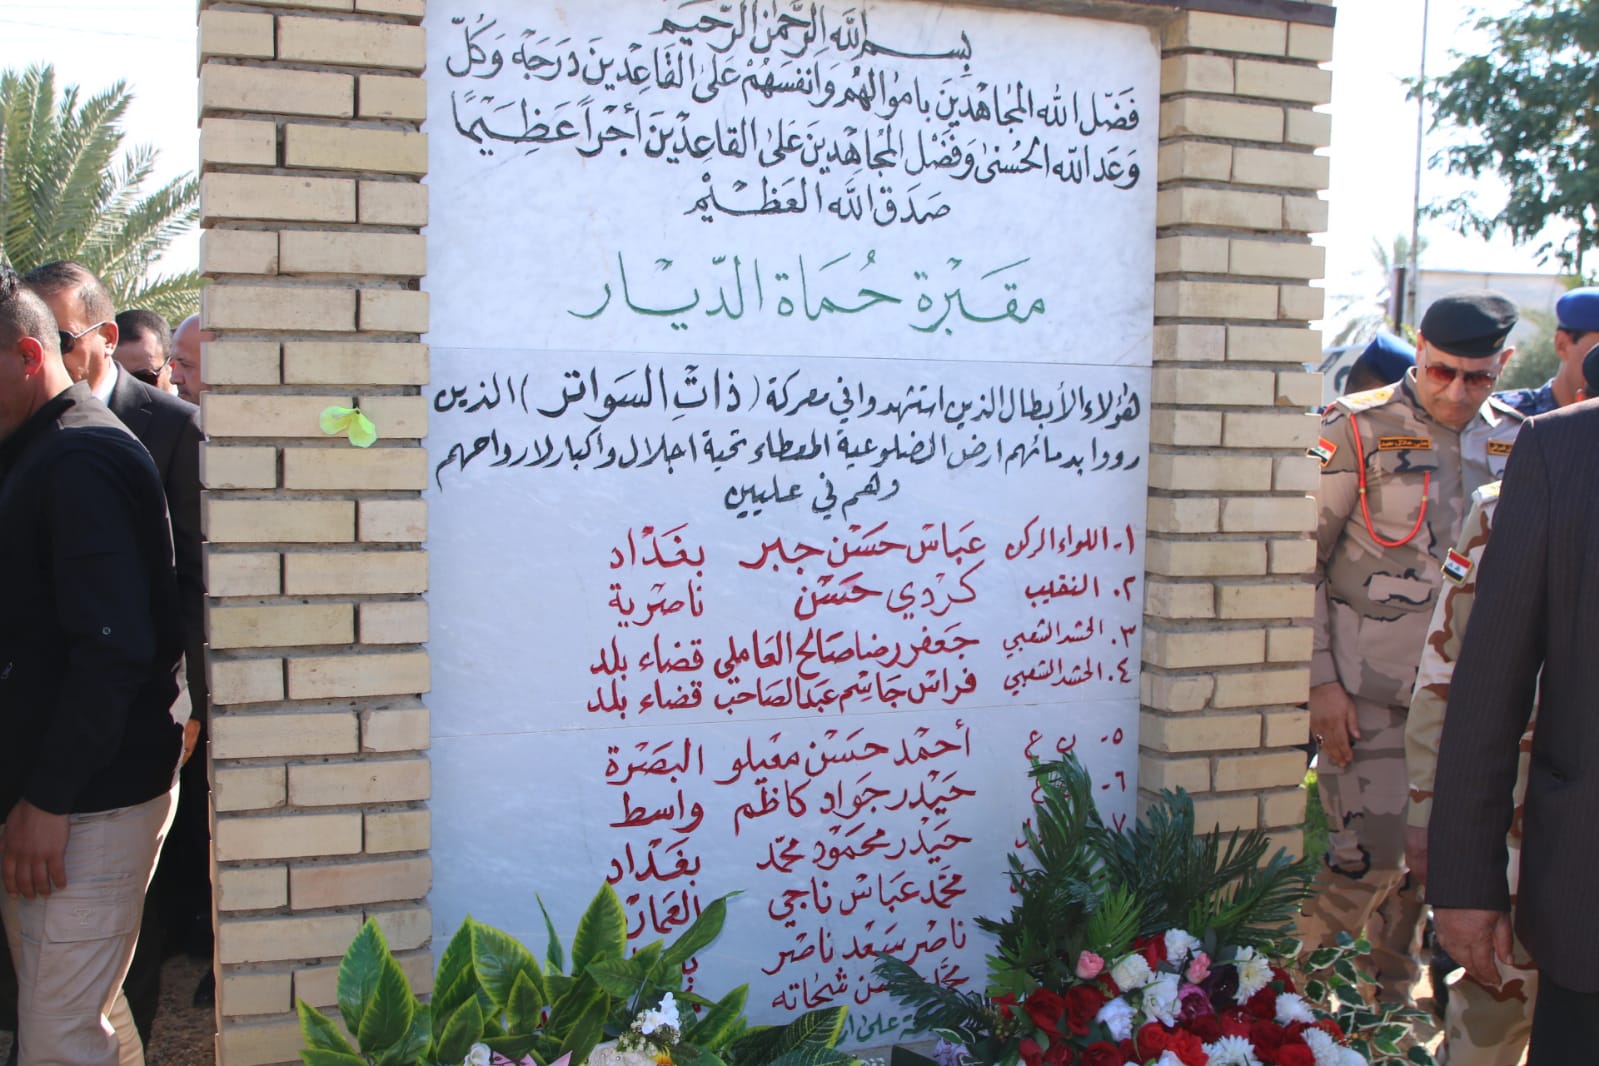 بِسْمِ اللهِ الرَّحْمٰنِ الرَّحِيْمِ
فَضَّلَ اللهُ المُجَاهْدِينَ بِامْوَالِهُمْ وَانفسَهُمْ عَلَىٰ القَاعِدْينَ دَرَجَةً وَكُلّ
وَعَدَ اللّه الحُسنىٰ وَفَضَّلَ المُجَاهْدِينَ عَلَىٰ القَاعِدْينَ أَجْراً عَظِيْماً
صَدَقَ اللهُ العَظْيْمِ
مَقبَرْة حُمَاة الدّيَار
هؤلاء الأبطال الذين استشهدوا في معركة ( ذاتِ السَواتر ) الذين
رووا بدمائهم ارض الضلوعية المعطاء تحية اجلال واكبار لارواحهم
وهم في عليين
١- اللواء الركن عَبَاسْ حسَنْ جبر بغَدْاد
٢. النقيب كردي حَسَنْ ناصرية
٣. الحشد الشعبي جَعفر رضا صَالح العَاملي قضاء بلد
٤. الحشد الشعبي فراسْ جَاسِم عَبدالصَاحب قضاء بلد
٥- ن ع أحمد حسَنْ مغيلو البصَرْة
٦- ع حَيْدر جَواد كاظم واسط
٧ حَيْدر محمَوْد محمّد بغَدْاد
محمَّد عَباسْ ناجي العمارْ
ناصر سَعْد ناصْر
شحَاته
على